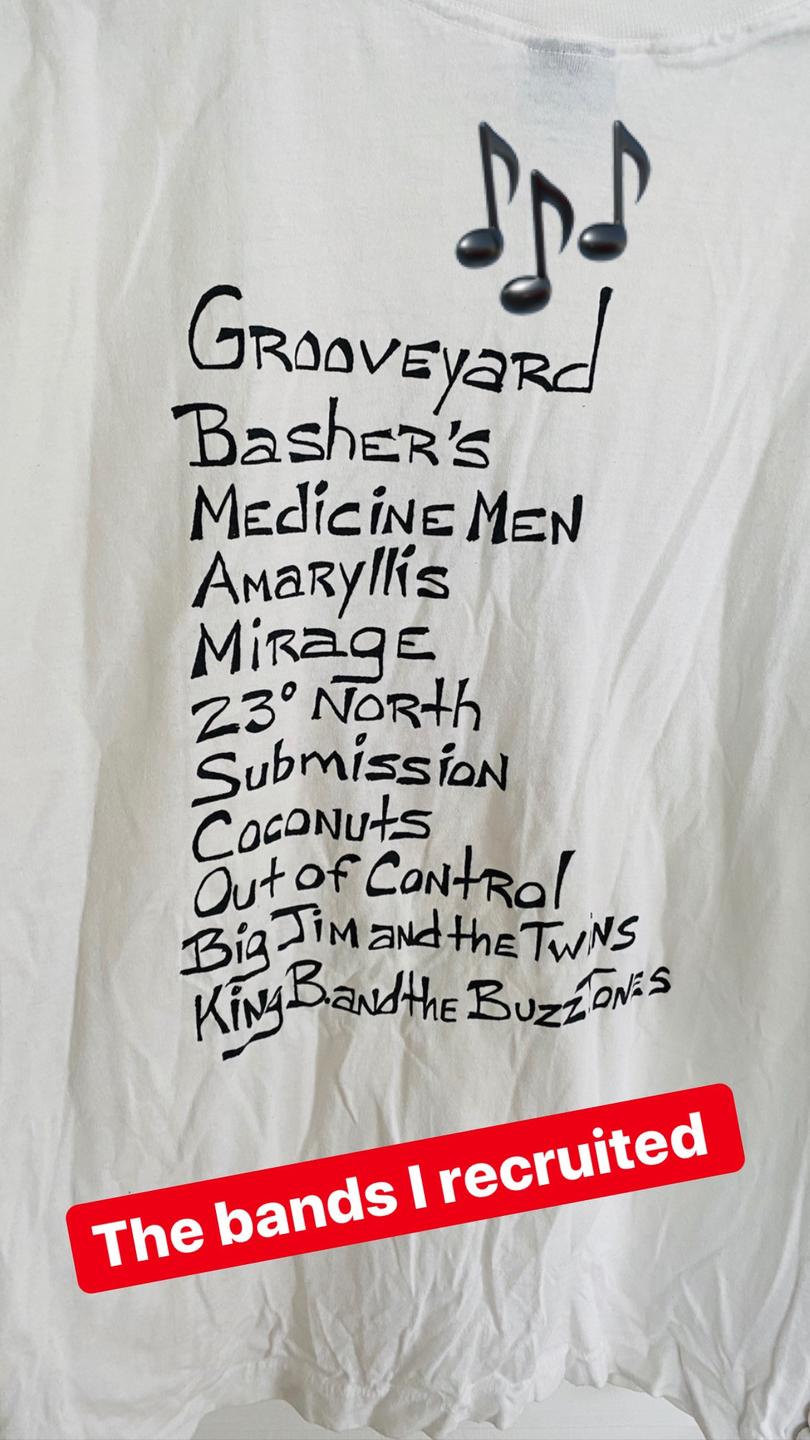 Grooveyard
Basher's
Medicine Men
Amaryllis
Mirage
23° North
Submission
Coconuts
Out of Control
Big Jim and the Twins
King B. and the Buzz Tones
The bands I recruited